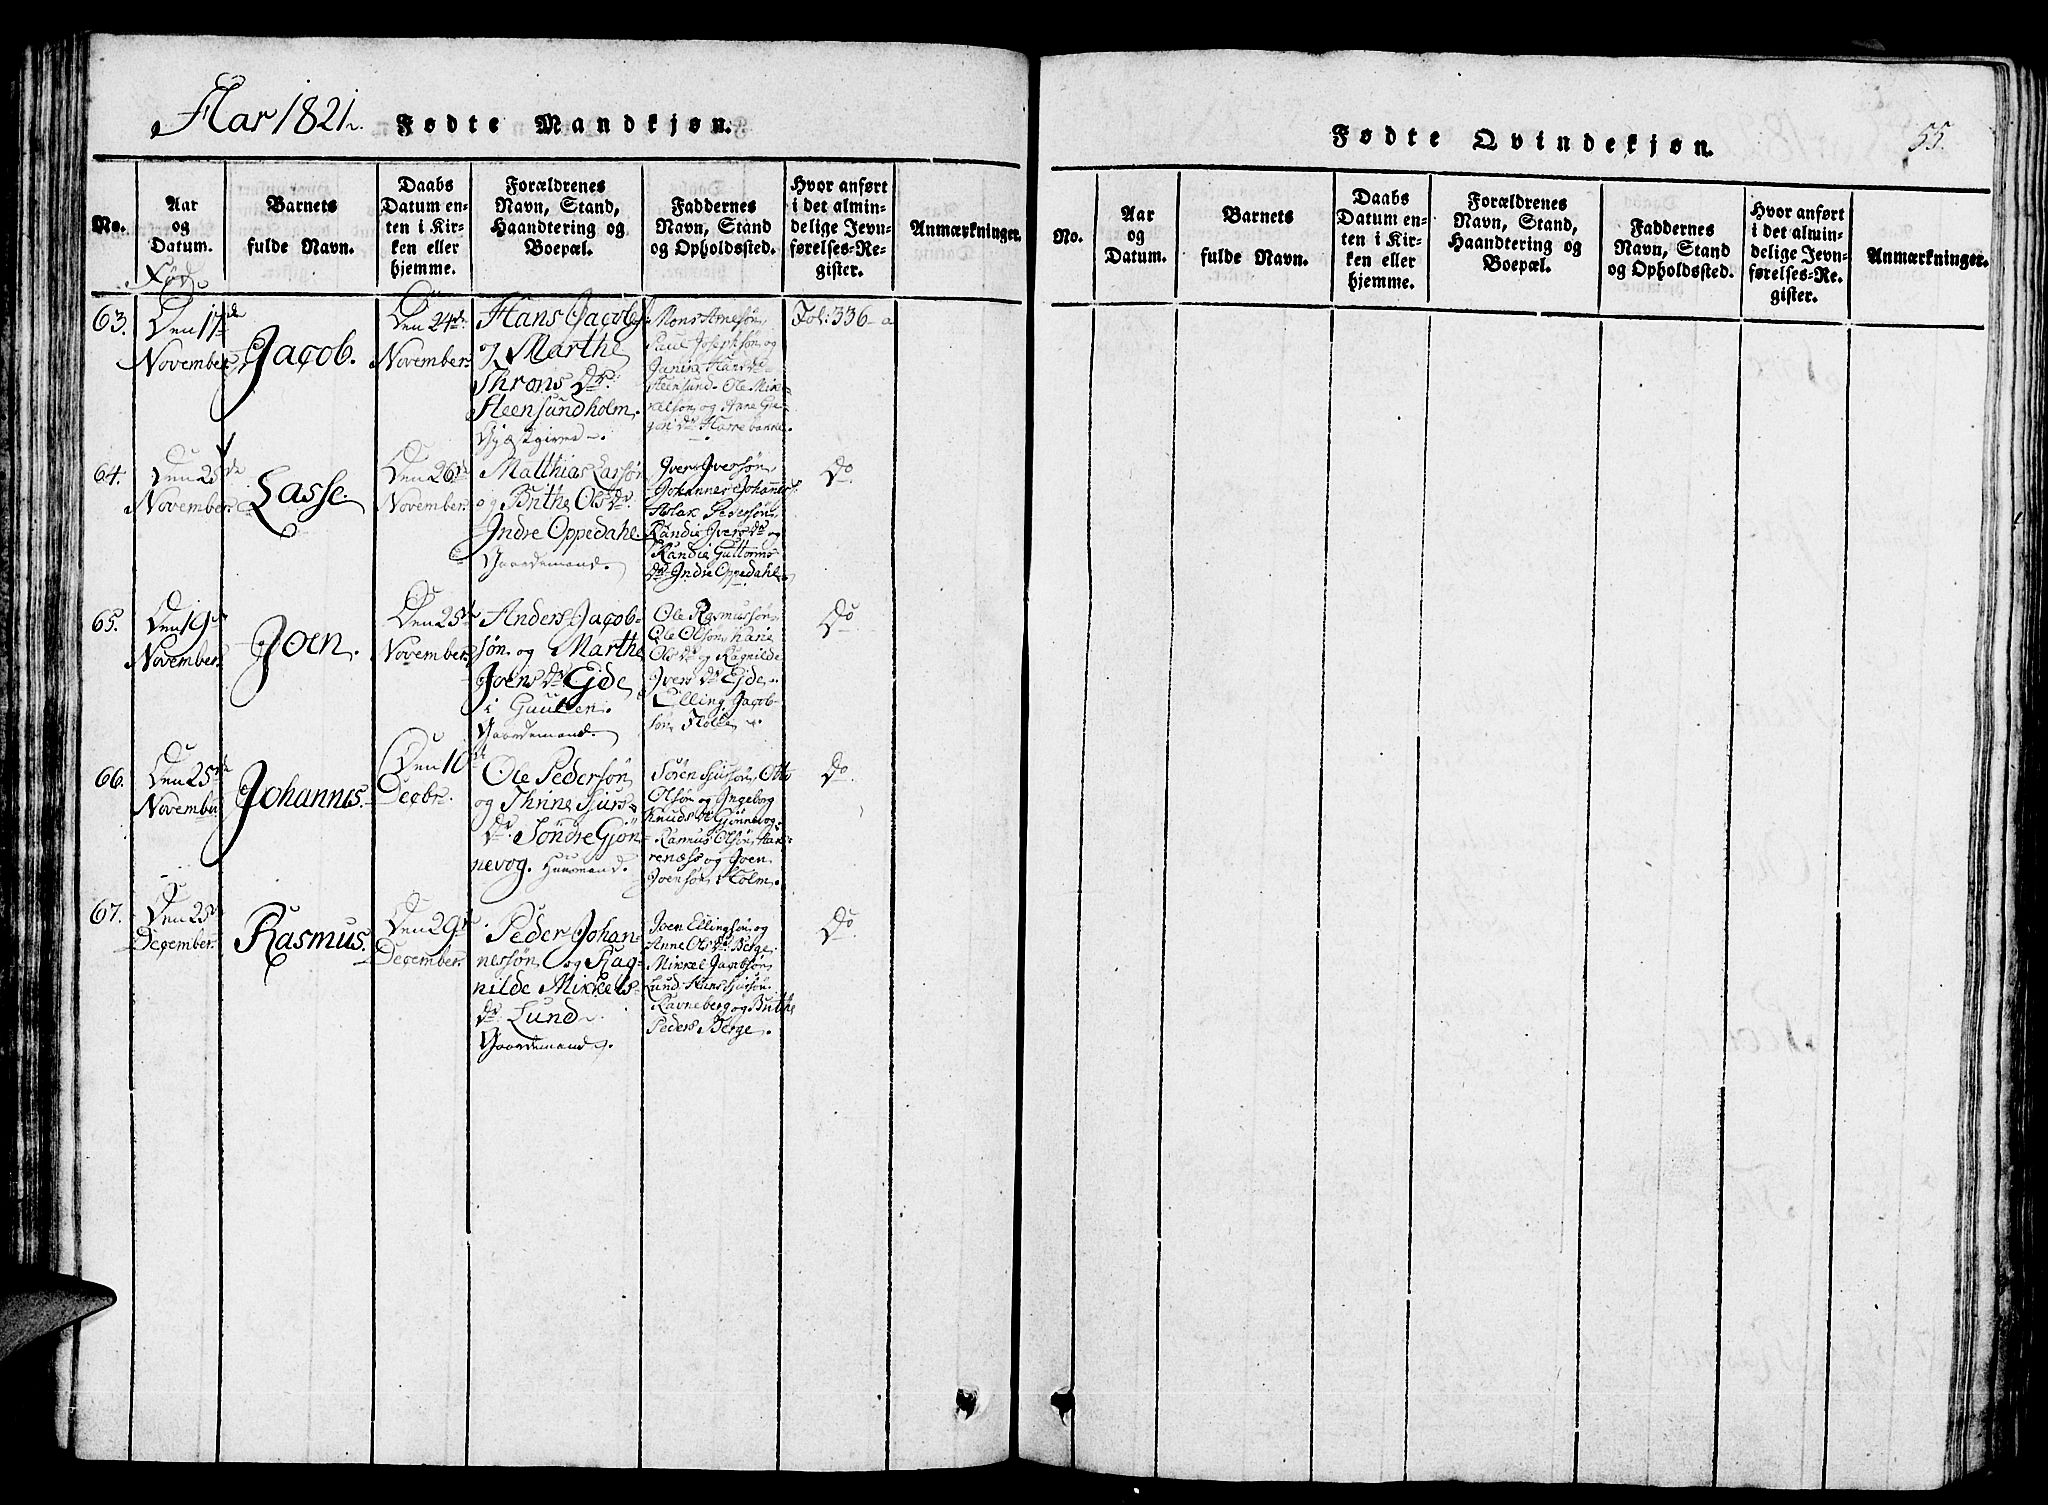 Aar 1821.
Fødte Mandkjøn.
No.
Aar
og
Datum.
Fød
Barnets
fulde Navn.
Daabs
Datum en-
ten i Kir-
ken eller
hjemme.
Forældrenes
Navn, Stand,
Haandtering og
Boepæl.
Faddernes
Navn, Stand
og Opholdssted.
Hvor anført
i det almin-
delige Jevn-
førelses-Re-
gister.
Anmærkninger.
63.
Den 17de
November.
Jacob.
Den 24de
November.
Hans Jacobs:
og Marthe
Throns dr.
Steensundholm.
Gjæstgiver.
Mons Arnesøn,
Paul Josephsøn og
Steensund. Ole Mik-
kelsøn og Anne
Fol: 336-a
64.
Den 25de
November.
Lasse.
Den 26de
November.
Matthias Larsøn
og Brithe Ols dr.
Indre Oppedahl.
Gaardemand.
Iver Iversøn,
Johannes Johannes:
Aslak Pedersøn,
Randie Ivers dr og
Randie Guttorms
dr Indre Oppedahl.
do
65.
Den 19de
November.
Joen.
Den 25de
November.
Anders Jacob-
søn og Marthe
Joens dr Ejde
i Guulen.
Gaardemand.
Ole Rasmussøn,
Ole Olsøn, Karie
Ols dr og Ragnilde
Ivers dr Ejde.
Elling Jacob-
søn
do
66.
Den 25de
November
Johannes.
Den 10de
Decbr.
Ole Pedersøn
og Thrine Siurs-
dr. Søndre Gjøn-
nevog. Huusmand.
Søren Siursøn, Otto
Olsøn og Ingeborg
Knuds dr Gjønnevog.
Rasmus Olsøn
renæss og Joen
Joensøn Holm.
do.
67.
Den 25de
December.
Rasmus.
Den 29de
December.
Peder Johan-
nessøn og Rag-
nilde Mikkels-
dr Lund.
Gaardemand.
Joen Ellingsøn og
Anne Ols dr Berge.
Mikkel Jacobsøn
Lund. Hans Siursøn
Ravneberg og Brithe
Peders Berge.
do.
Fødte Qvindekjøn.
55.
No.
Aar
og
Datum.
Barnets
fulde Navn.
Daabs
Datum en-
ten i Kir-
ken eller
hjemme.
Forældrenes
Navn, Stand,
Haandtering og
Boepæl.
Faddernes
Navn, Stand
og Opholdssted.
Hvor anført
i det almin-
delige Jevn-
førelses-Re-
gister.
Anmærkninger.